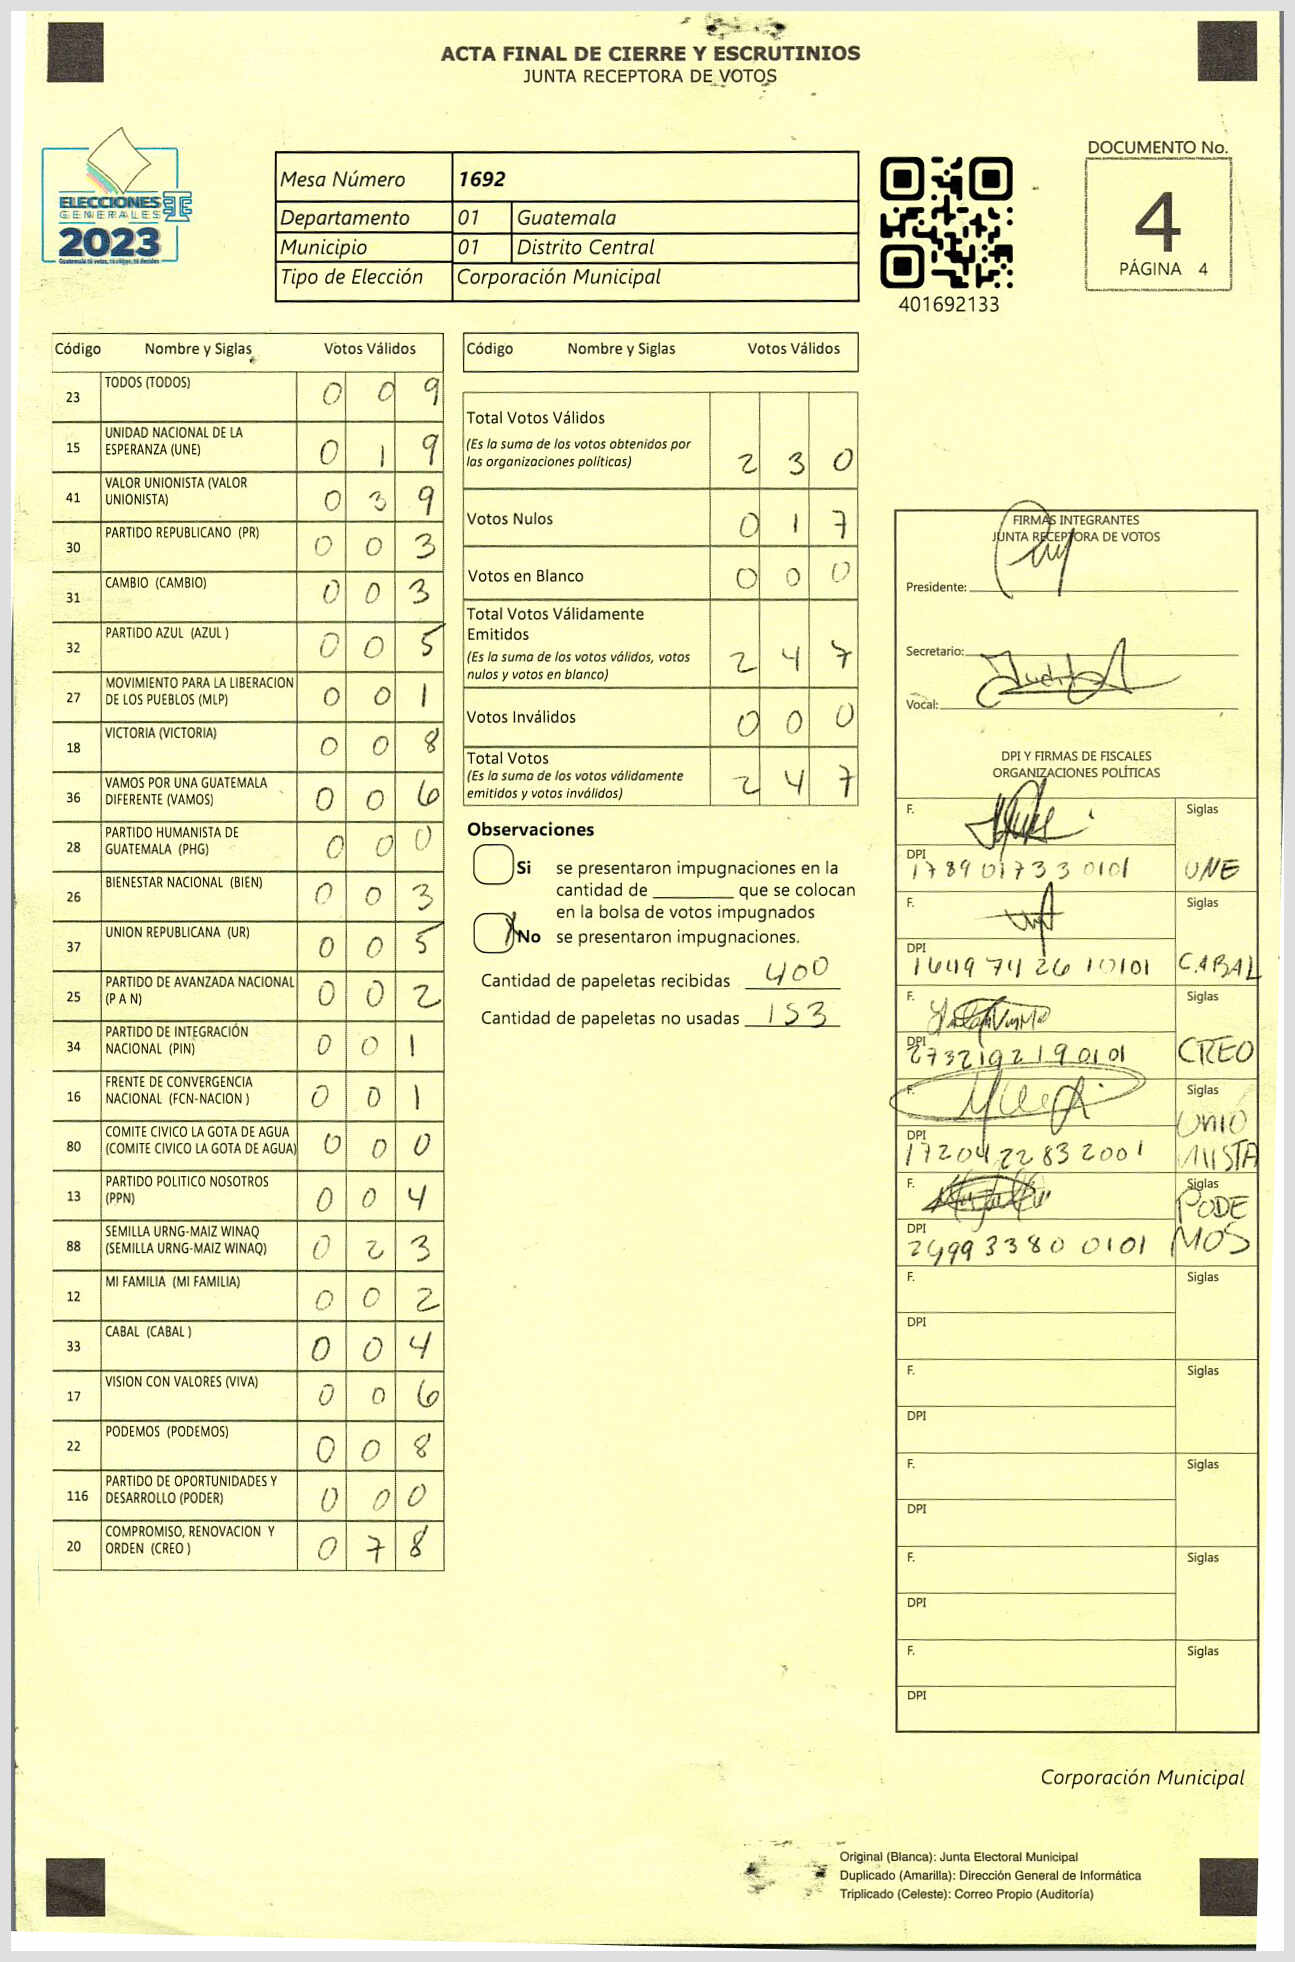 ACTA FINAL DE CIERRE Y ESCRUTINIOS
JUNTA RECEPTORA DE VOTOS
ELECCIONES
GENERALES
2023
Mesa Número 1692
Departamento 01 Guatemala
Municipio 01 Distrito Central
Tipo de Elección Corporación Municipal
401692133
DOCUMENTO No.
4
PÁGINA 4
Código Nombre y Siglas Votos Válidos
23 TODOS (TODOS) 0 0 9
15 UNIDAD NACIONAL DE LA
ESPERANZA (UNE) 0 1 9
41 VALOR UNIONISTA (VALOR
UNIONISTA) 0 3 9
30 PARTIDO REPUBLICANO (PR) 0 0 3
31 CAMBIO (CAMBIO) 0 0 3
32 PARTIDO AZUL (AZUL ) 0 0 5
27 MOVIMIENTO PARA LA LIBERACION
DE LOS PUEBLOS (MLP) 0 0 1
18 VICTORIA (VICTORIA) 0 0 8
36 VAMOS POR UNA GUATEMALA
DIFERENTE (VAMOS) 0 0 6
28 PARTIDO HUMANISTA DE
GUATEMALA (PHG) 0 0 0
26 BIENESTAR NACIONAL (BIEN) 0 0 3
37 UNION REPUBLICANA (UR) 0 0 5
25 PARTIDO DE AVANZADA NACIONAL
(P A N) 0 0 2
34 PARTIDO DE INTEGRACIÓN
NACIONAL (PIN) 0 0 1
16 FRENTE DE CONVERGENCIA
NACIONAL (FCN-NACION ) 0 0 1
80 COMITE CIVICO LA GOTA DE AGUA
(COMITE CIVICO LA GOTA DE AGUA) 0 0 0
13 PARTIDO POLITICO NOSOTROS
(PPN) 0 0 4
88 SEMILLA URNG-MAIZ WINAQ
(SEMILLA URNG-MAIZ WINAQ) 0 2 3
12 MI FAMILIA (MI FAMILIA) 0 0 2
33 CABAL (CABAL ) 0 0 4
17 VISION CON VALORES (VIVA) 0 0 6
22 PODEMOS (PODEMOS) 0 0 8
116 PARTIDO DE OPORTUNIDADES Y
DESARROLLO (PODER) 0 0 0
20 COMPROMISO, RENOVACION Y
ORDEN (CREO ) 0 7 8
Código Nombre y Siglas Votos Válidos
Total Votos Válidos
(Es la suma de los votos obtenidos por
las organizaciones políticas) 2 3 0
Votos Nulos 0 1 7
Votos en Blanco 0 0 0
Total Votos Válidamente
Emitidos
(Es la suma de los votos válidos, votos
nulos y votos en blanco) 2 4 7
Votos Inválidos 0 0 0
Total Votos
(Es la suma de los votos válidamente
emitidos y votos inválidos) 2 4 7
Observaciones
Si se presentaron impugnaciones en la
cantidad de ________ que se colocan
en la bolsa de votos impugnados
X No se presentaron impugnaciones.
Cantidad de papeletas recibidas 400
Cantidad de papeletas no usadas 153
FIRMAS INTEGRANTES
JUNTA RECEPTORA DE VOTOS
Presidente:
Secretario:
Vocal:
DPI Y FIRMAS DE FISCALES
ORGANIZACIONES POLÍTICAS
F. Siglas
DPI 1789017330101 UNE
F. Siglas
DPI 1649742610101 CABAL
F. Siglas
DPI 2732192190101 CREO
F. Siglas
UNIO
DPI 1720422832001 NISTA
F. Siglas
PODE
DPI 2499338000101 MOS
F. Siglas
DPI
F. Siglas
DPI
F. Siglas
DPI
F. Siglas
DPI
F. Siglas
DPI
Corporación Municipal
Original (Blanca): Junta Electoral Municipal
Duplicado (Amarilla): Dirección General de Informática
Triplicado (Celeste): Correo Propio (Auditoría)